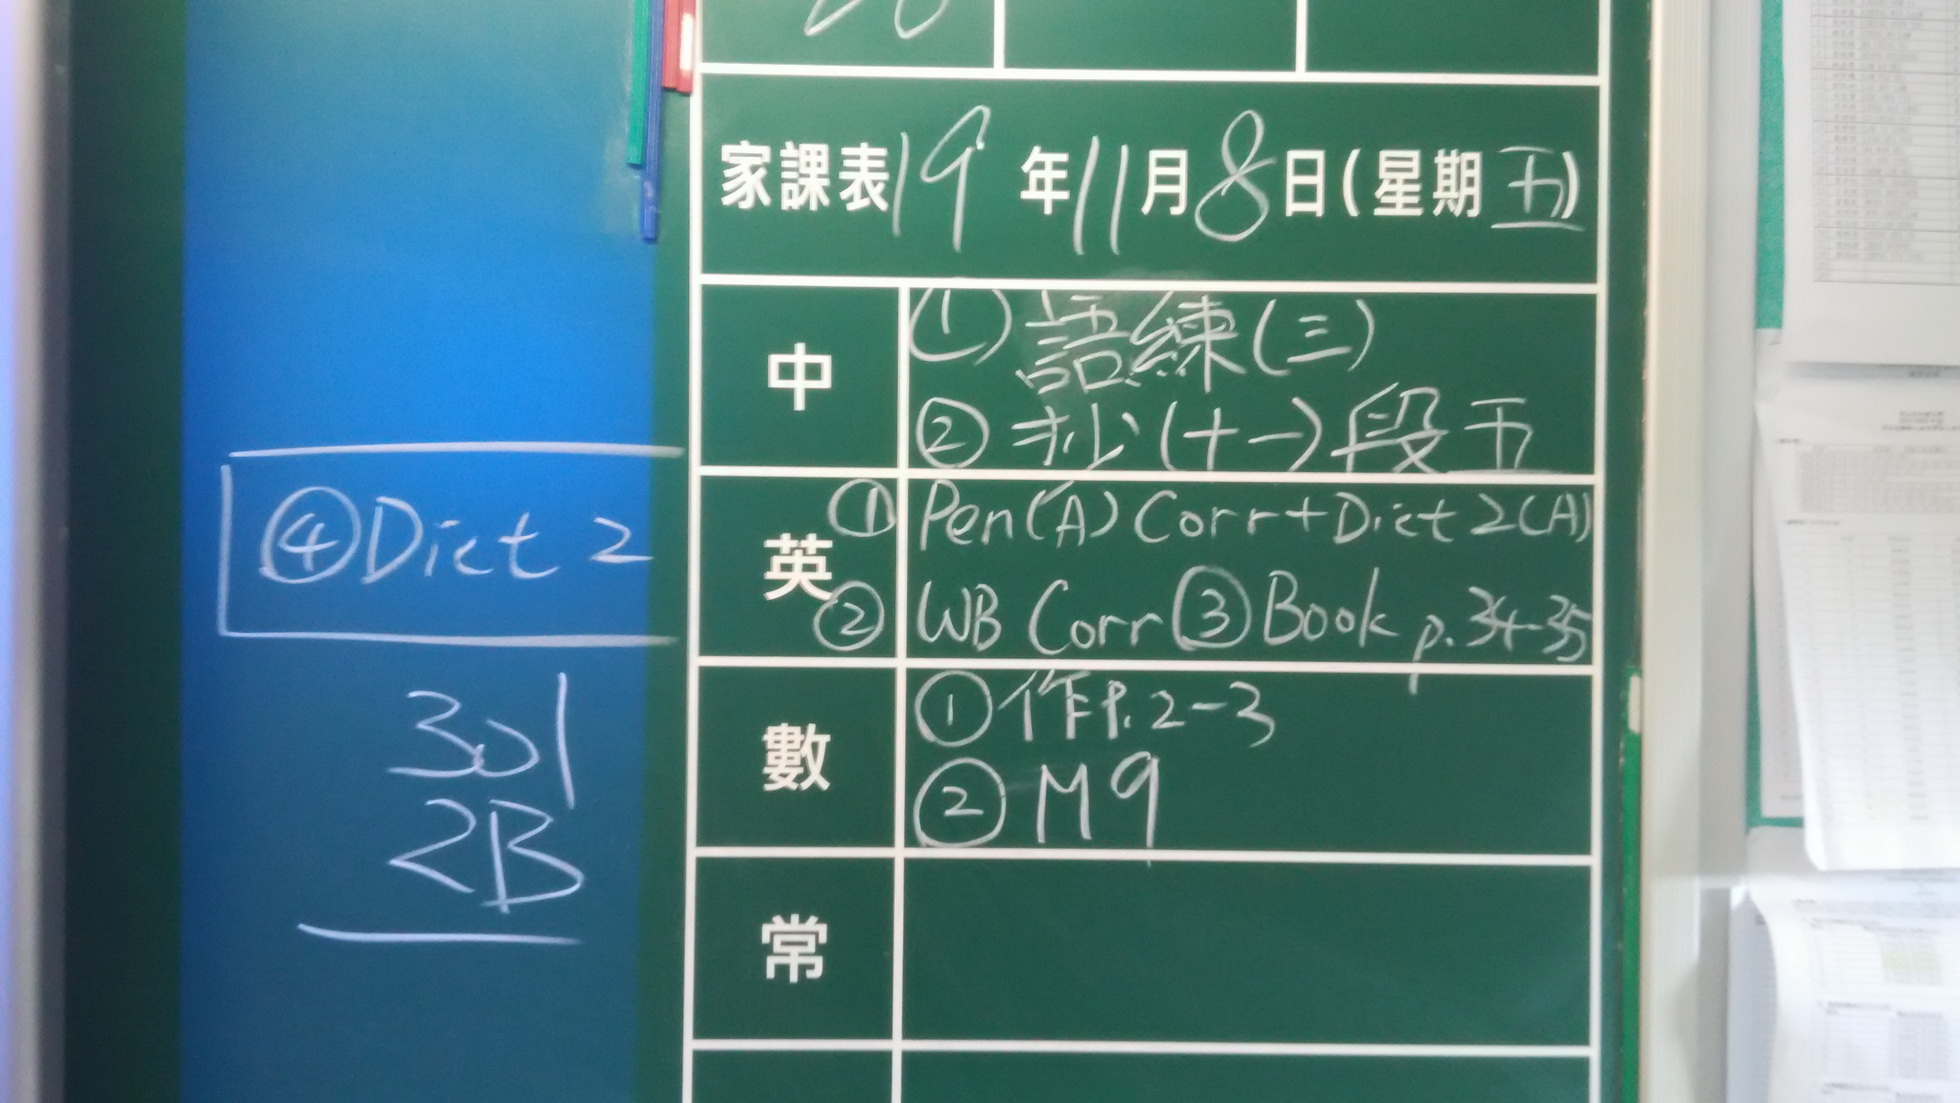 家課表19年11月8日(星期五)
中
① 語練(三)
② 抄(十一)段五
英
① Pen(A) Corr+Dict 2(A)
② WB Corr ③ Book p.34-35
④ Dict 2
數
① 作P.2-3
② M9
常
301
2B